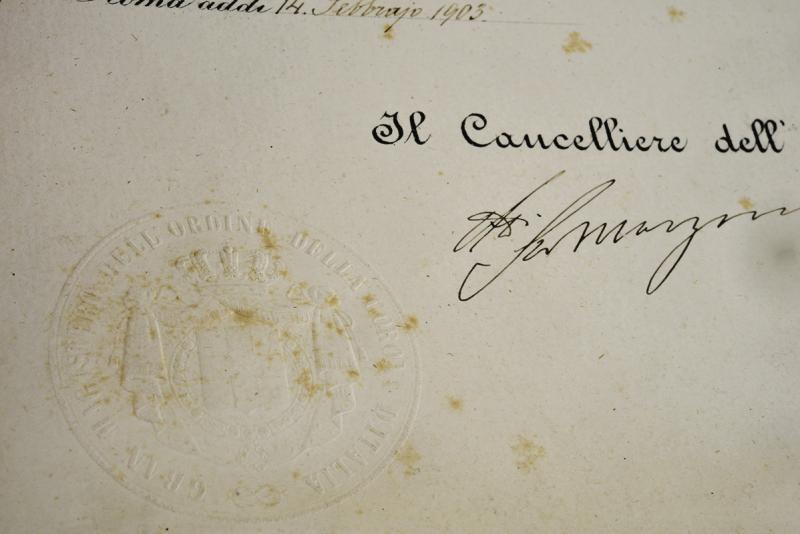 Roma addì 14. Febbrajo 1903.
Il Cancelliere dell'
GRAN MAGISTERO DELL'ORDINE DELLA CORONA D'ITALIA